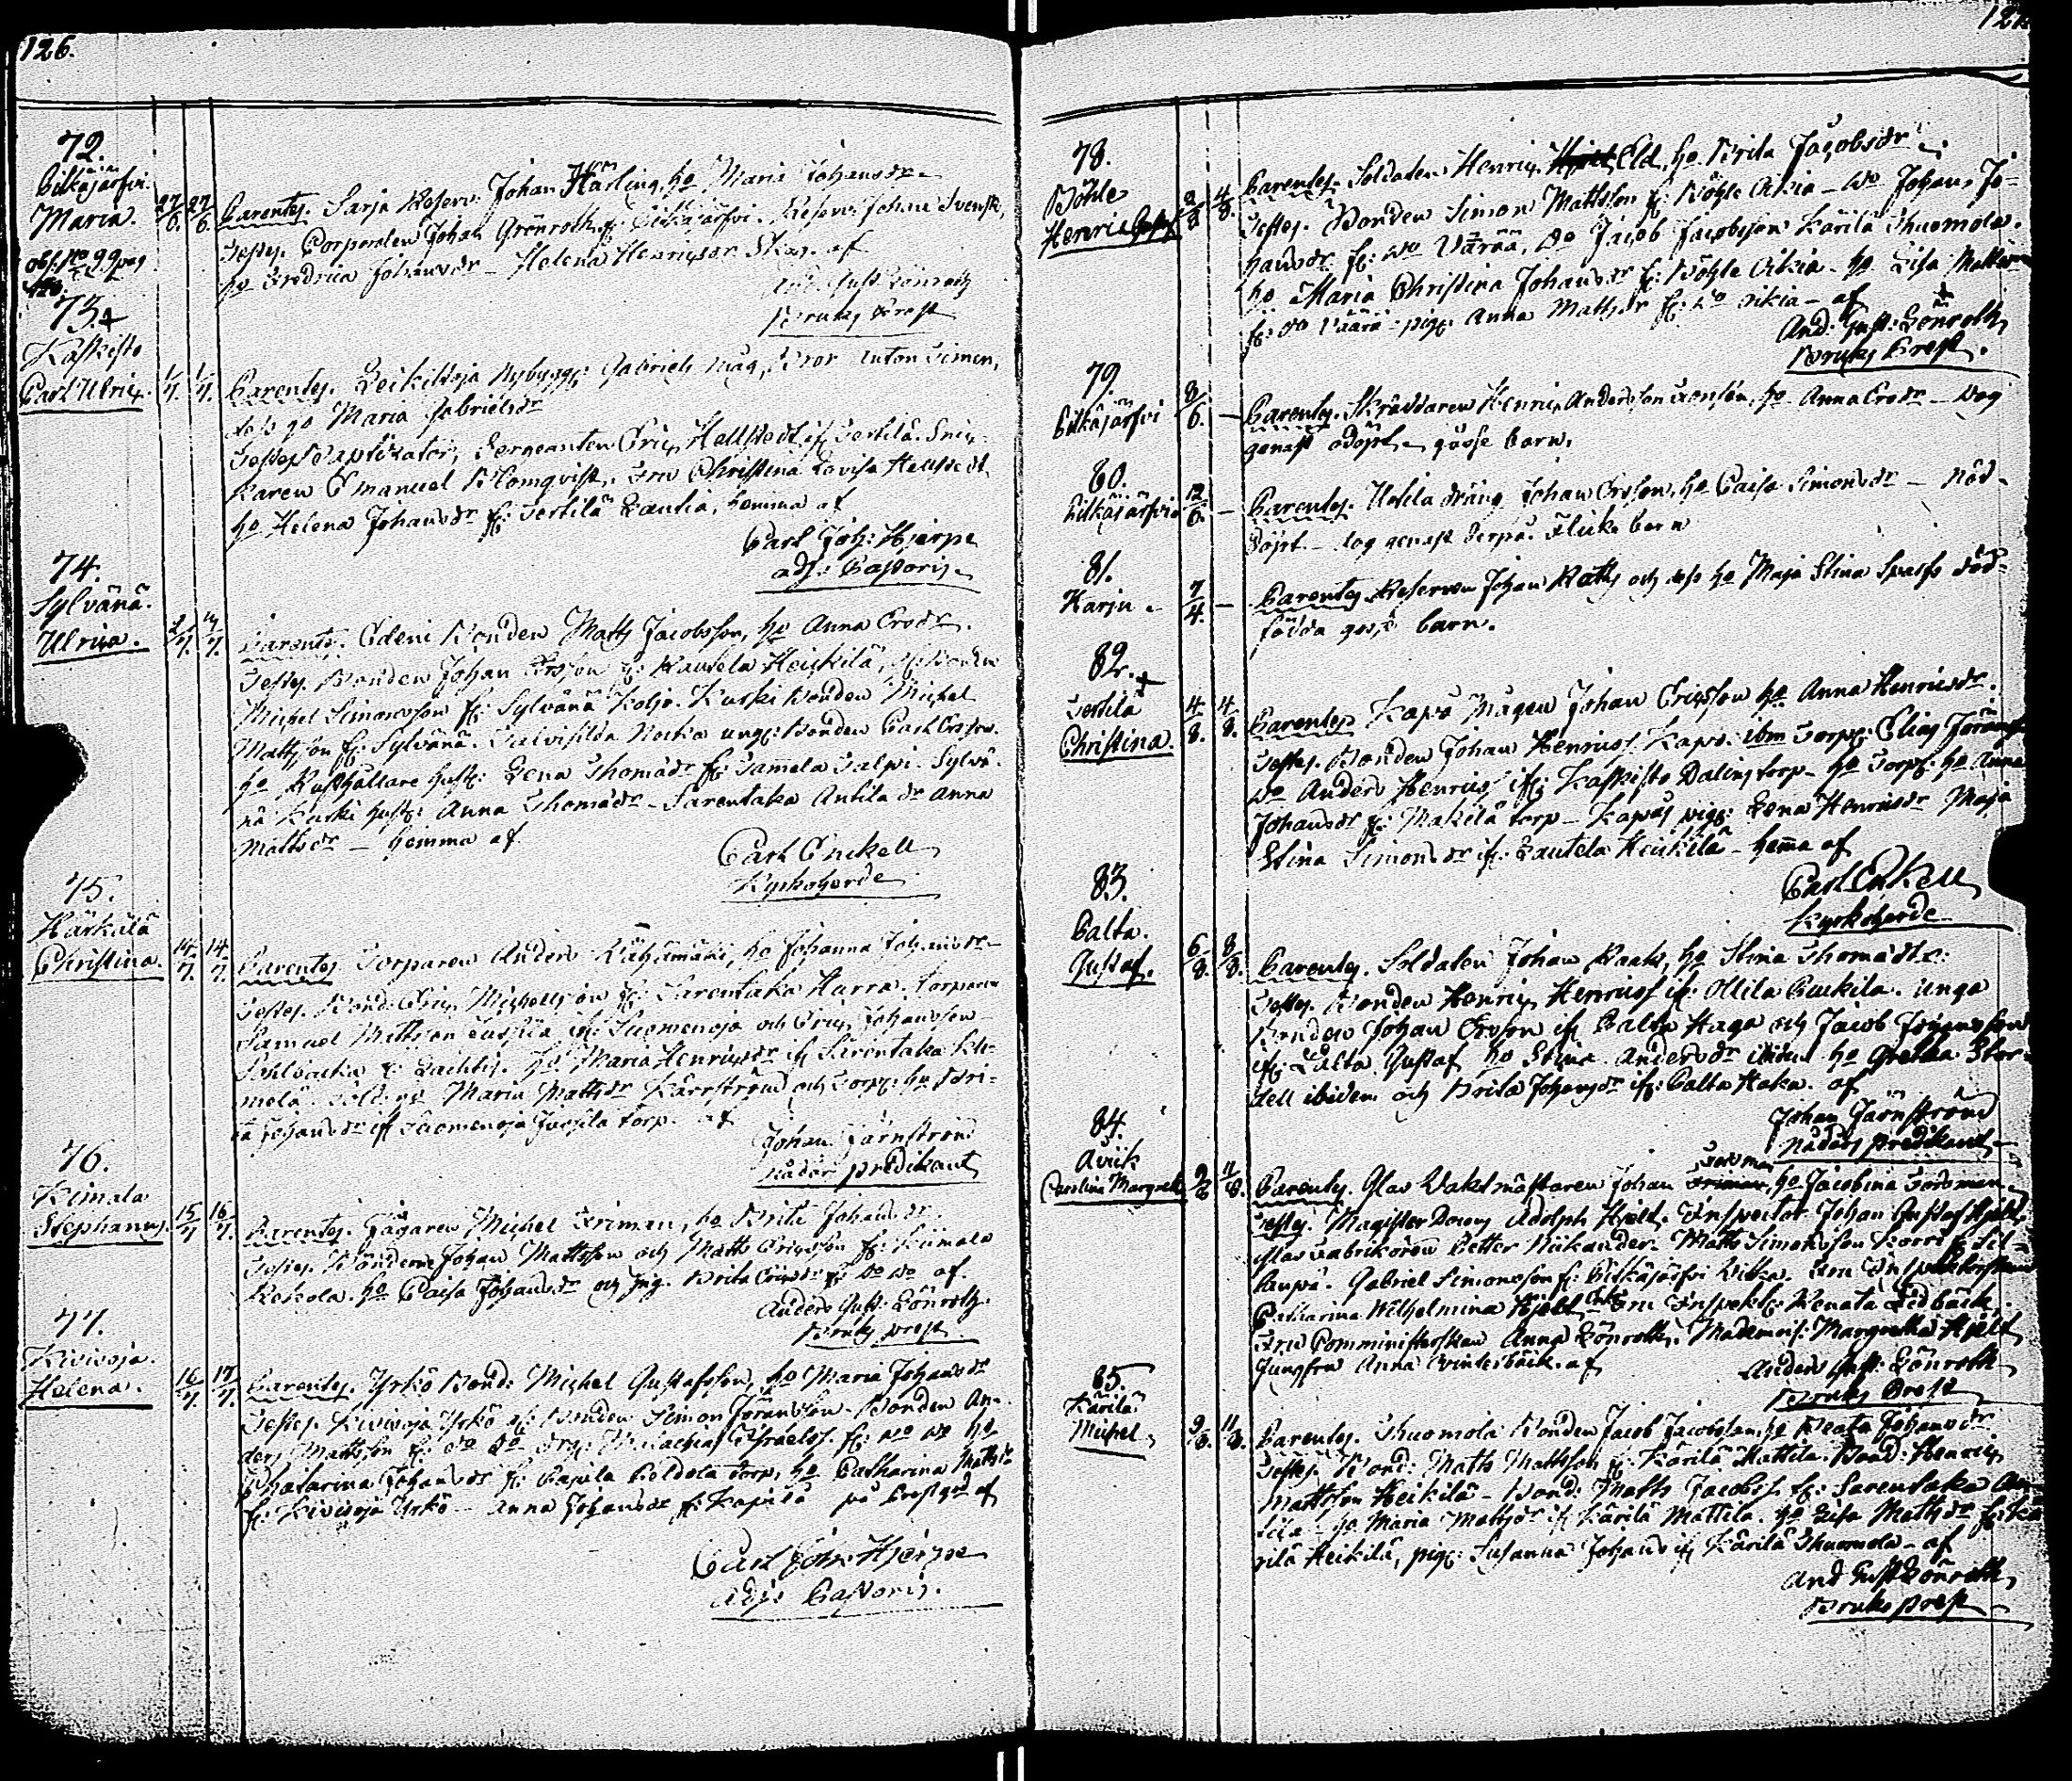 126.
72.
Pitkäjärfvi.
Maria. 27/6. 27/6.
Parentes. Sarja Reserv. Johan Härling, ho Maria Johansdr
Testes. Corporalen Johan Grönroth, fr. Pitkäjärfvi. Reserv. Johan Svensk,
ho Fredrica Johansdr - Helena Henricsdr af
And. Gust. Lönroth
Bruks Prest
73.+
Kaskisto
Carl Ulric. 1/7. 1/7.
Parentes. Nybygg: Gabriels måg, Anton Simon,
dess ho Maria Gabrielsdr
Testes Baptisator, Sergeanten Eric Hellstedt if Terttilä. Snic-
karen Emanuel Blomqvist. Fru Christina Lovisa Hellstedt
ho Helena Johansdr fr: Terttilä Lautia, hemma af
Carl Joh: Hjerpe
adj: Pastoris
74.
Sylvänä.
Ulrica. 2/7. 4/7.
Parentes. Edeni Bonden Matts Jacobsson, ho Anna Ersdr.
Testes. Bonden Johan Ersson fr: Rautela Heickilä, Bonden
Michel Simonsson fr: Sylvänä Koljo. Kurki Bonden Michel
Mattsson fr: Sylvänä. Bonden Carl Ersson.
ho Rusthållare hust: Lena Thomädr fr: Tamela Talpi. Sylvä-
nä Kurki hust: Anna Thomädr - Sarentaka Antila dr Anna
Mattsdr - hemma af
Carl Enckell
Kyrkoherde
75.
Härkälä
Christina. 14/7. 14/7.
Parentes Torparen Anders ho Johanna Johansdr
Testes. Bond: Eric Michelsson fr: Sarentaka Hurra. torparen
Samuel Mattsson if: Suomenoja och Eric Johansson
ho Maria Henricsdr if Sarentaka Ku-
mola. Sold: ho Maria Mattsdr Kärrström och Torp: ho Bri-
ta Johansdr if Suomenoja Jussila torp. af
Johan Järnström
Nådår predikant
76.
Kimala
Stephanus. 15/7 16/7.
Parentes. Jägaren Michel Friman, ho Brita Johansdr.
Testes. Bönderne Johan Mattsson och Matts Ericsson fr: Kiimala
Kokola. ho Caisa Johansdr och pig. Brita Ericsdr fr: Do Do af
Anders Gust: Lönroth.
Bruks prest.
77.
Kivivoja.
Helena. 16/7. 17/7.
Parentes. Yrkö Bond: Michel Gustafsson, ho Maria Johansdr
Testes. Kivivoja Yrkö Bonden Simon Göransson. Bonden An-
ders Mattsson fr: Do Do drg: Malachias Israelss. fr: Do Do ho
Chatarina Johansdr fr: torp, ho Catharina Mattsdr
fr: Kivivoja Yrkö - Anna Johansdr fr: Kapilä på Prestgd af
Carl Joh: Hjerpe
Adj: Pastoris.
78.
Böhle
Henric Gustaf 2/8 4/8.
Parentes. Soldaten Henric Eld, ho Brita Jacobsdr
Testes. Bonden Simon Mattsson fr: Böhle Oikia - Do Johan Jo-
hansdr fr: Do Väärä, Do Jacob Jacobsson Kärilä Thuomola.
ho Maria Christina Johansdr fr: Böhle Oikia - ho Lisa Mattsdr
fr: Do Väärä - pig: Anna Mattsdr fr: Do Oikia - af
And: Gust: Lönroth
Bruks Prest.
79.
Pitkäjärfvi 8/6. -
Parentes. Skräddaren Henric Andersson ho Anna Ersdr - Dog
genast odöpt - gosse barn.
80.
Pitkäjärfvi 12/6. -
Parentes. Uotila dräng Johan Ersson, ho Caisa Simonsdr - Nöd-
döpt - dog genast derpå. Flicke barn
81.
Harju. 7/4. -
Parentes Reserven Johan Rask och dess ho Maja Stina död-
födda gosse barn.
82.+
Terttilä
Christina. 4/8. 4/8.
Parentes Kapo Mågen Johan Ericsson ho Anna Henricsdr.
Testes. Bonden Johan Henricss. Kapo. ibm Torp: Elias Göranss
Do Anders Henricss if: Kaskisto Dalins torp - ho Torp: ho Anna
Johansdr fr: Makilä torp - Kapos pig: Lena Henricsdr Maja
Stina Simonsdr if: Lautela Heickilä - hema af
Carl Enckell
Kyrkoherde
83.
Palta.
Gustaf. 6/8. 8/8.
Parentes. Soldaten Johan Raask, ho Stina Thomädr
Testes. Bonden Henric Henricss if: Ollila Unga
Bonden Johan Ersson if Palta Haga och Jacob Johansson
if: Palta. Gustaf ho Stina Andersdr ibidem ho Gretha Stor-
dell ibidem och Brita Johansdr if: Palta Haka. af
Johan Järnström
Nådårs predikant
84.
Avick
Carolina Margreth 9/8 11/8.
Parentes. Glas Vaktmästaren Johan Fordman, ho Jacobina Fordman
Testes. Magister Doms Adolph Hjelt. Inspector Johan Gustaf Hjelt
Glas Fabrikören Petter Niikander. Matts Simonsson Korri fr: Sil-
kenpä. Gabriel Simonsson fr: Pitkäjärfvi Fru Inspectorskan
Catharina Wilhelmina Hjelt Enk. Fru Inspekt: Renata Lidbäck,
Fru Comministerskan Anna Lönroth, Mademois: Margretha Hjelt
Jungfru Anna Winterbäck. af
Anders Gust: Lönroth
Bruks Prest
85.
Kärilä
Michel 9/8. 11/8.
Parentes. Thuomola Bonden Jacob Jacobsson, ho Beata Johansdr
Testes. Bond: Matts Mattsson fr: Kärilä Mattila. Bond: Henric
Mattsson Heikilä - Bond: Matts Jacobss. fr: Sarentaka An-
tila - ho Maria Mattsdr if: Kärilä Mattila. ho Lisa Mattsdr fr: Kä-
rilä Heikilä, pig: Susanna Johansd if Kärilä Thuomola - af
And Gust Lönroth
Bruks prest